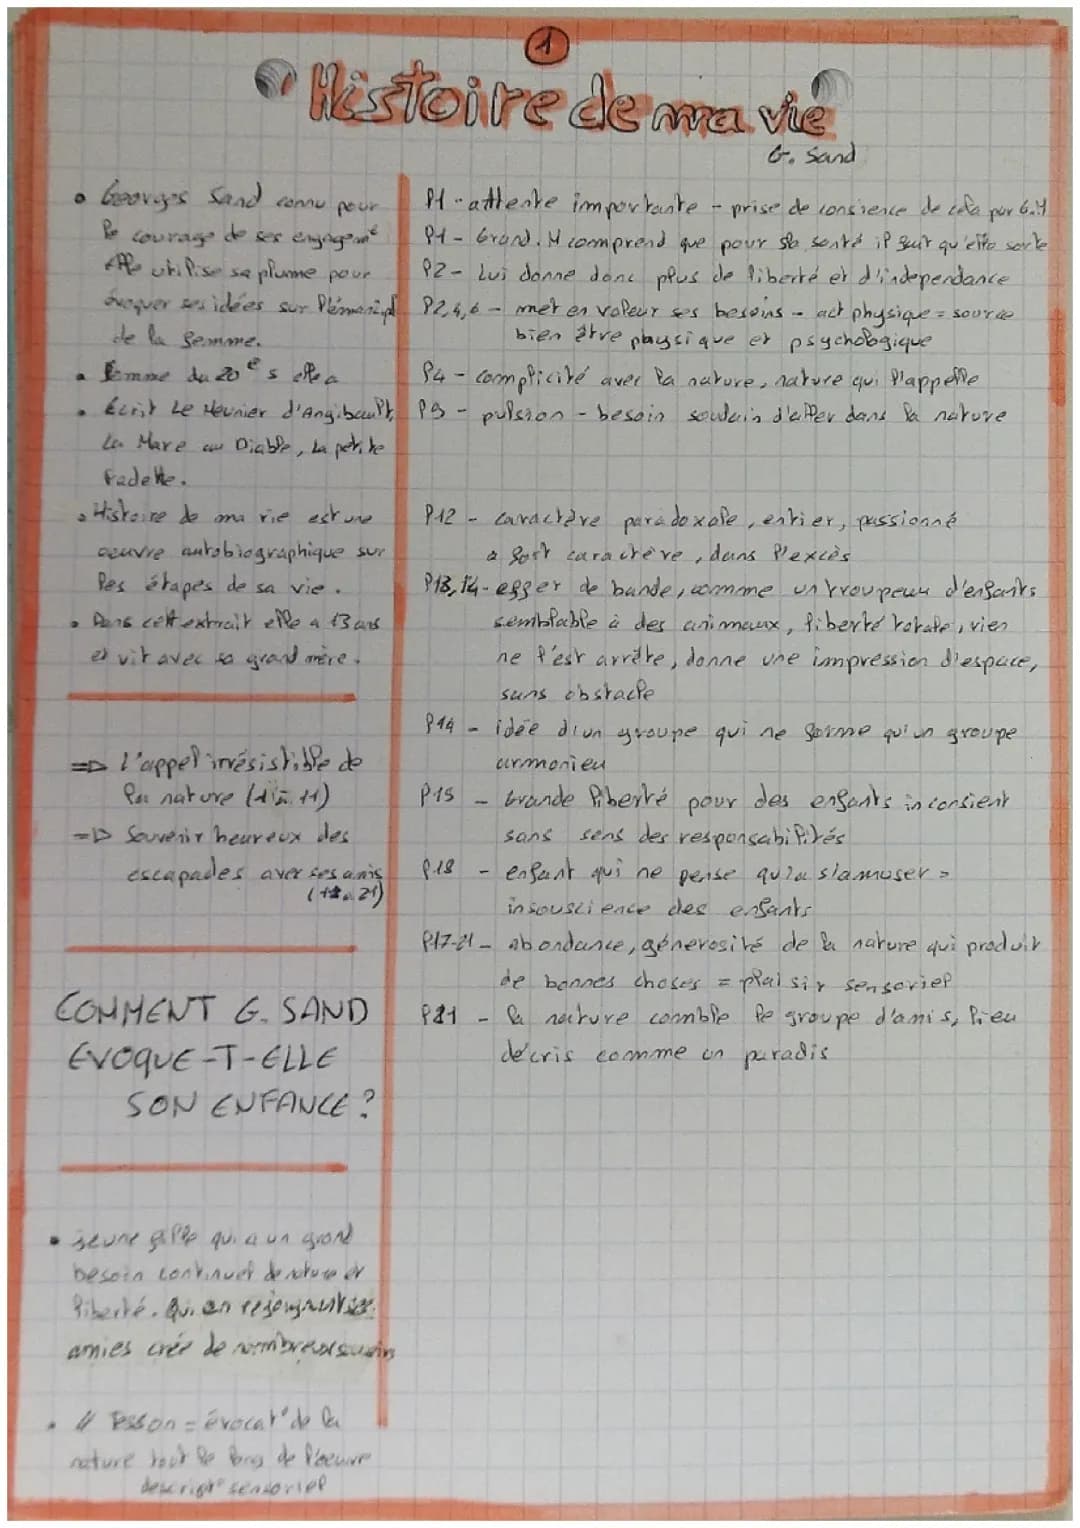 1
Histoire de ma vie
G. Sand
• Georges Sand connu pour
le courage de ses engagemt
elle utilise sa plume pour
évoquer ses idées sur l'émancipt
de la femme.
• Femme du 20e s elle a
• écrit Le Meunier d'Angibault,
La Mare au Diable, La petite
Fadette.
• Histoire de ma vie est une
oeuvre autobiographique sur
les étapes de sa vie.
• Dans cett extrait elle a 13 ans
et vit avec sa grand mère.
=> L'appel irrésistible de
la nature (1 à 11)
=> Souvenir heureux des
escapades avec ses amis
(12 à 21)
COMMENT G. SAND
EVOQUE-T-ELLE
SON ENFANCE ?
• jeune fille qui a un grand
besoin continuel de nature et
liberté. Qui en rejoignant ses
amies crée de nombreux souvenirs
• // Tesson = évocat° de la
nature tout le long de l'oeuvre
descript° sensoriel
l1 - attente importante - prise de consience de cela par G.M
l1 - Grand. M comprend que pour sa santé il faut qu'elle sorte
l2 - Lui donne donc plus de liberté et d'independance
l2,4,6 - met en valeur ses besoins - act physique = source
bien être physique et psychologique
l4 - complicité avec la nature, nature qui l'appelle
l9 - pulsion - besoin soudain d'aller dans la nature
l12 - caractère paradoxale, entier, passionné
a fort caractère, dans l'excès
l13,14 - effet de bande, comme un troupeux d'enfants
semblable à des animaux, liberté totale, rien
ne l'est arrête, donne une impression d'espace,
sans obstacle
l14 - idée d'un groupe qui ne forme qu'un groupe
armonieu
l15 - Grande liberté pour des enfants inconsient
sans sens des responsabilités
l18 - enfant qui ne pense qu'a s'amuser =
insouscience des enfants
l17-21 - abondance, génerosité de la nature qui produit
de bonnes choses = plaisir sensoriel
l21 - la nature comble le groupe d'amis, lieu
décris comme un paradis